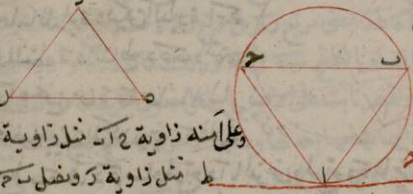 ب ح
ه ر
وعلى آ منه زاوية ح ا مثل زاوية
ا ط
مثل زاوية ر ونصل ب ح